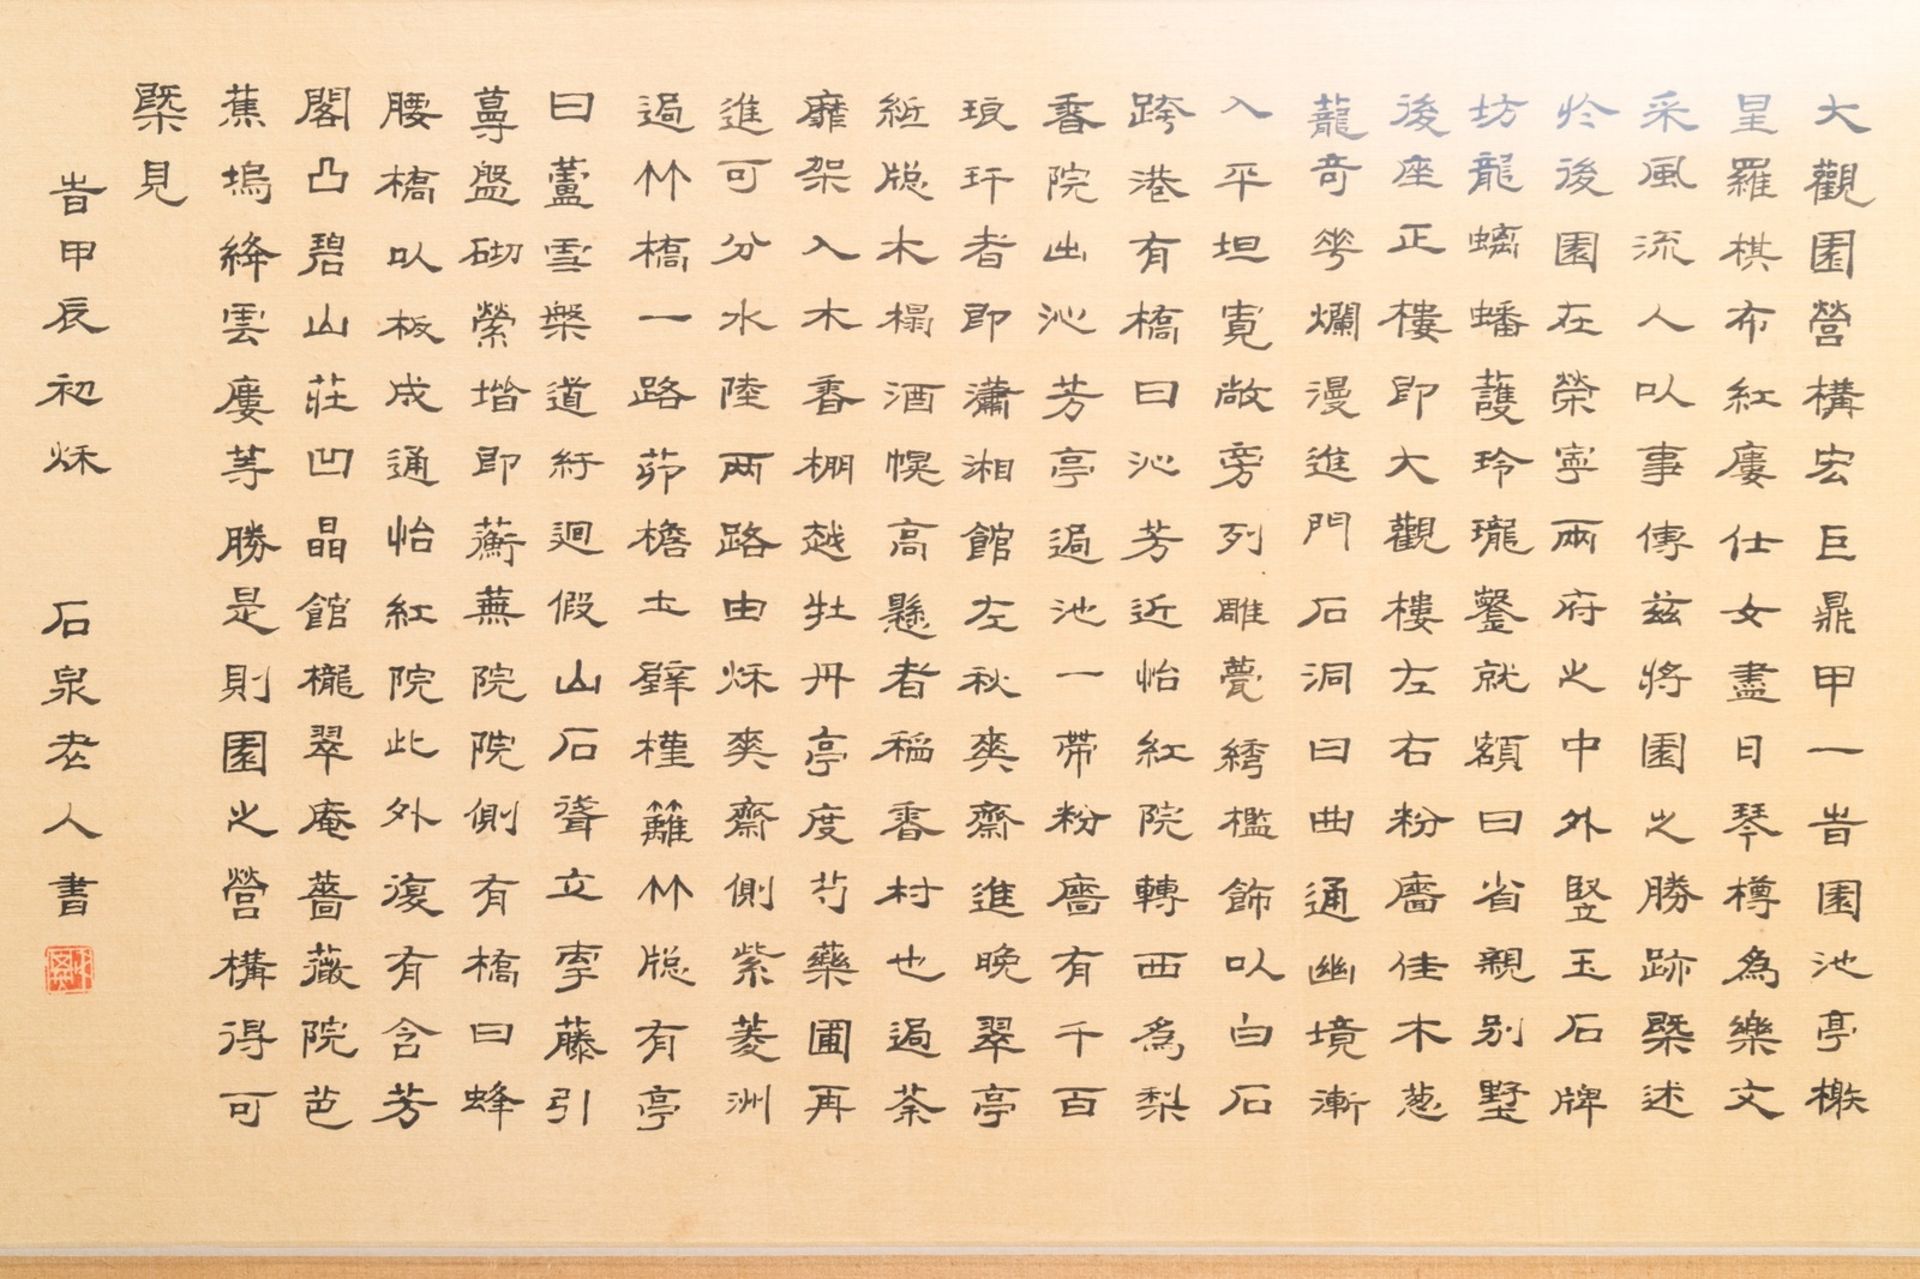 大觀園營構宏巨鼎甲一旹園池亭榭
星羅棋布紅廔仕女盡日琴樽為樂文
采風流人以事傳茲將園之勝跡槩述
於後園在榮寧兩府之中外竪玉石牌
坊龍螭蟠護玲瓏鑿就額曰省親別墅
後座正樓即大觀樓左右粉廧佳木葱
蘢奇花爛漫進門石洞曰曲通幽境漸
入平坦寬敞旁列雕甍綉檻飾以白石
跨港有橋曰沁芳近怡紅院轉西為梨
香院出沁芳亭過池一帶粉廧有千百
琅玕者即瀟湘館左秋爽齋進晚翠亭
紙牕木榻酒幌高懸者稻香村也過荼
蘼架入木香棚越牡丹亭度芍藥圃再
進可分水陸兩路由秌爽齋側紫菱洲
過竹橋一路茆檐土壁槿籬竹牕有亭
曰蘆雪槃道紆迴假山石聳立牽藤引
蔓盤砌縈堦即蘅蕪院院側有橋曰蜂
腰橋以板成通怡紅院此外復有含芳
閣凸碧山莊凹晶館櫳翠庵薔薇院芭
蕉塢絳雲廔等勝是則園之營構得可
槩見
旹甲辰初秌 石泉老人書